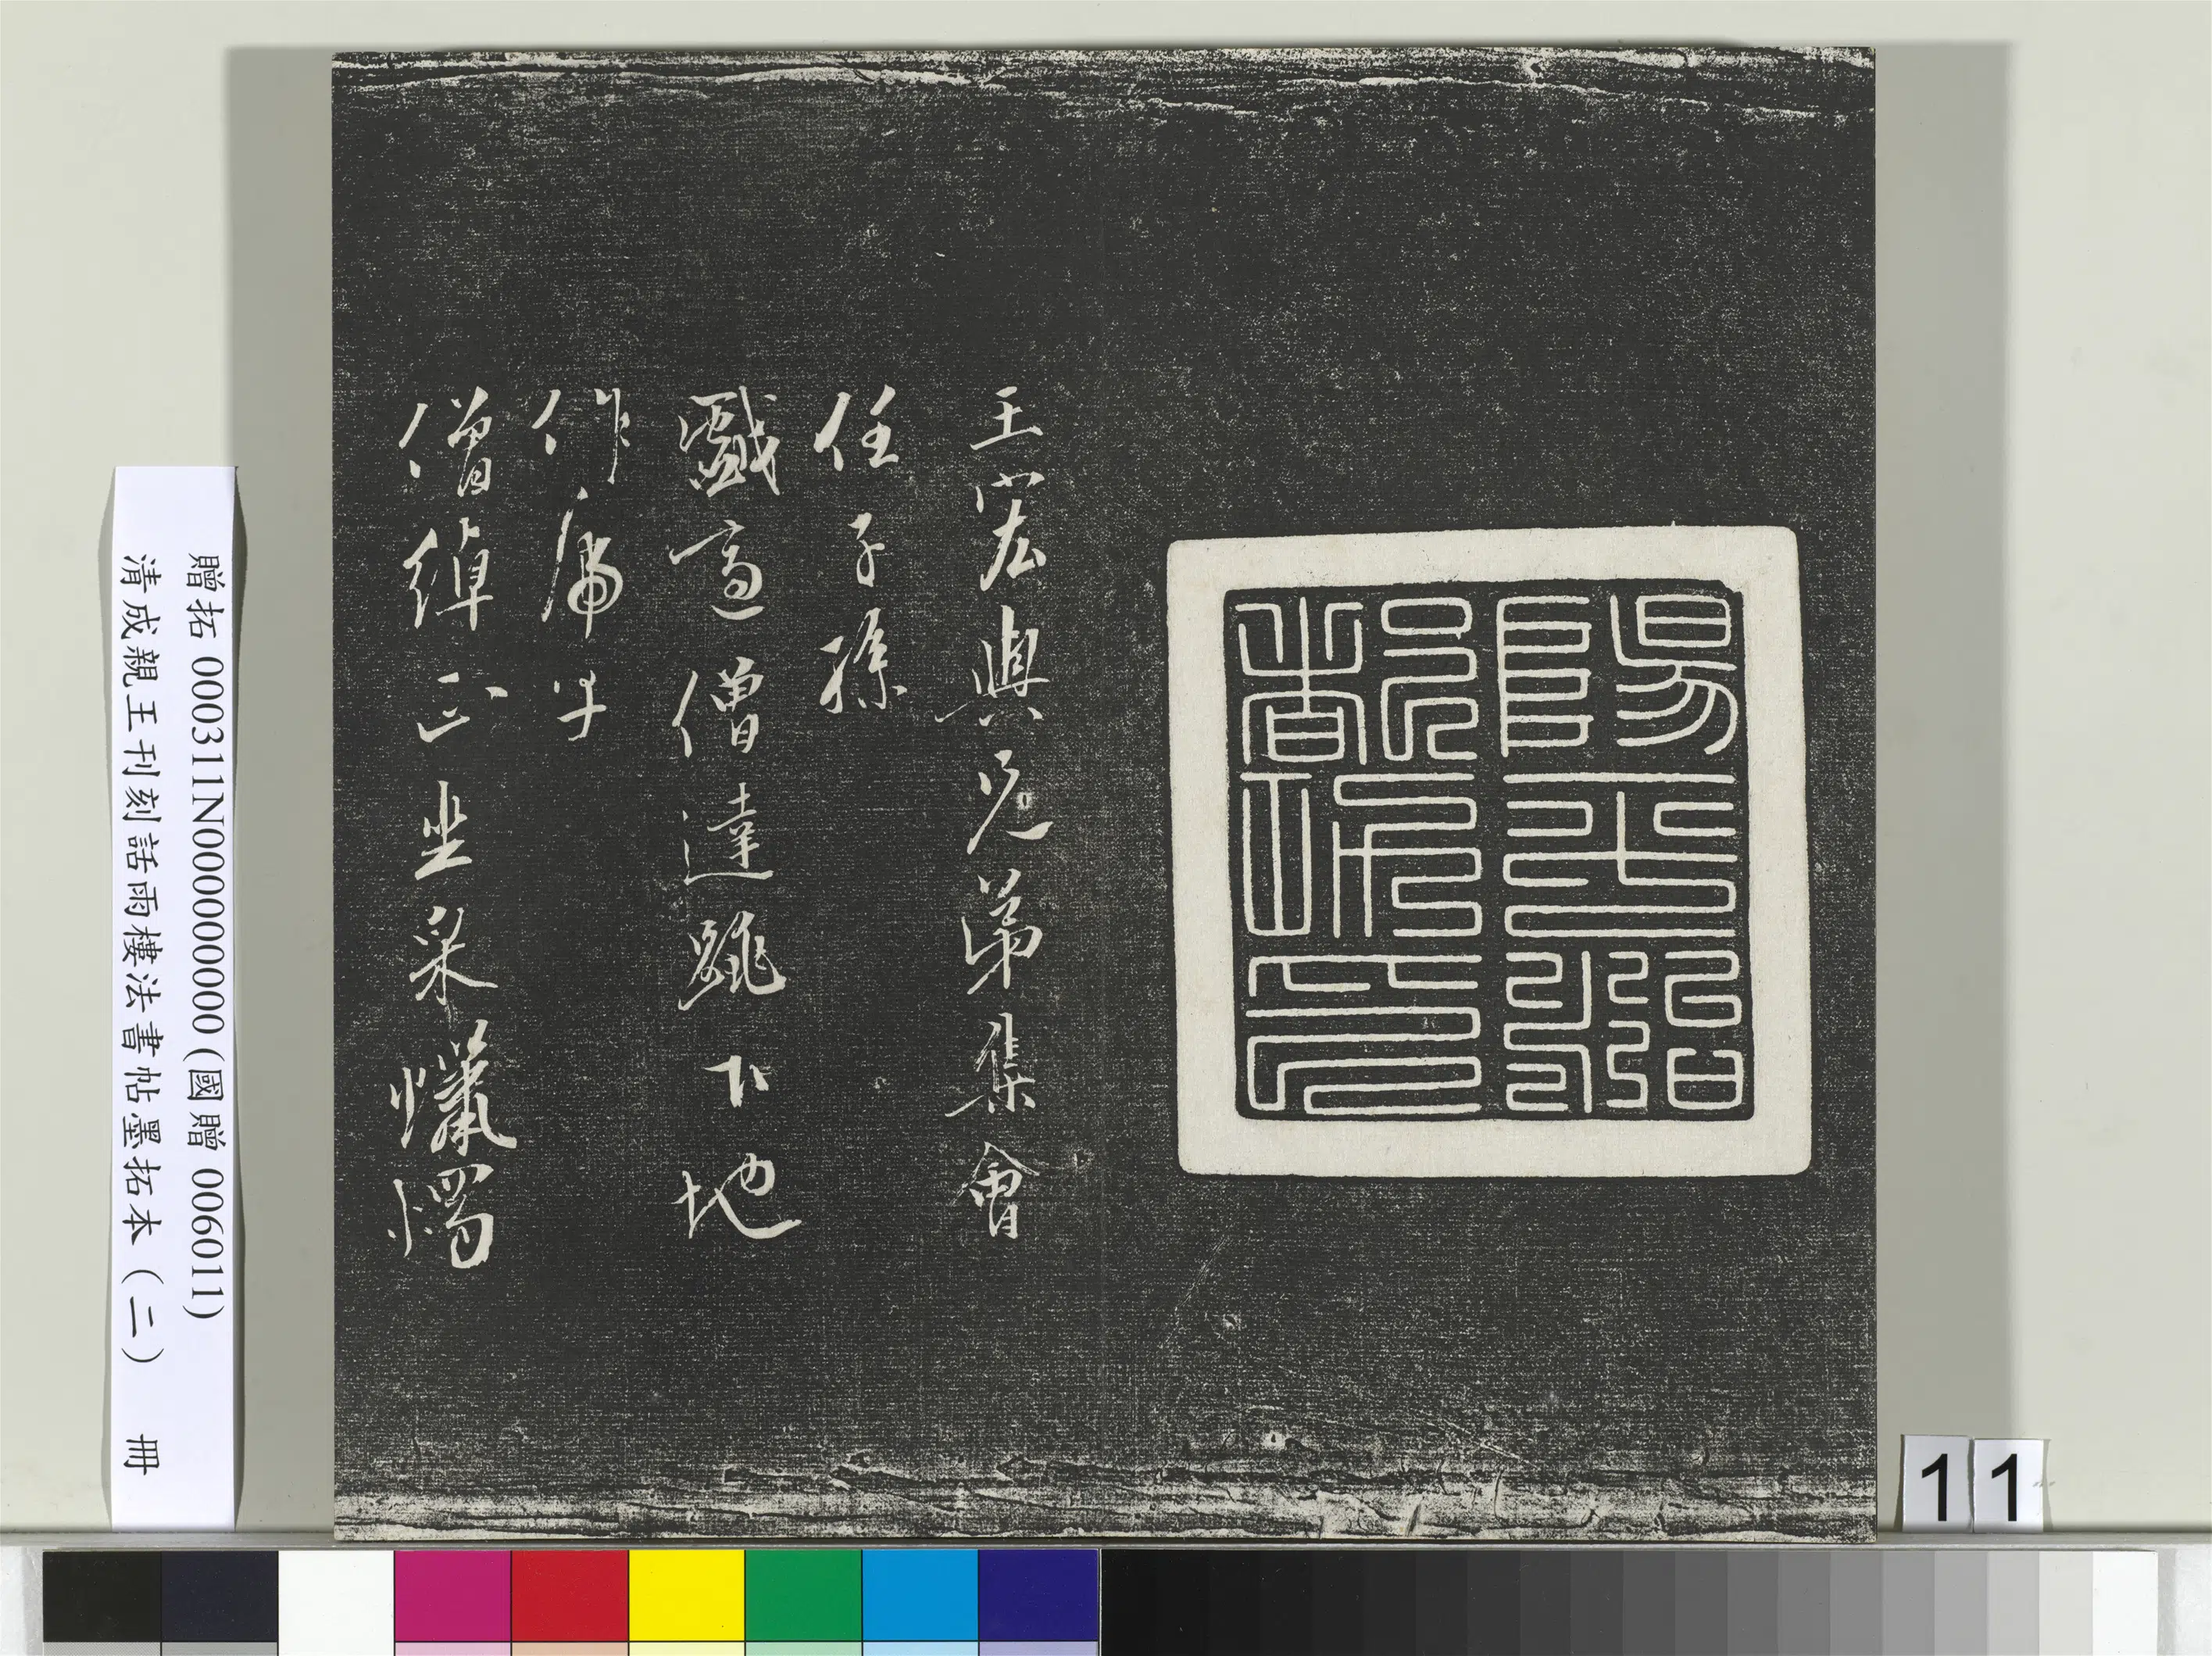 王宏與兄弟集會
任子孫
戲適僧達跳下地
作虎子
僧綽正坐采蠟燭
贈拓 000311N000000000 (國贈 006011)
清成親王刊刻話雨樓法書帖墨拓本（二） 冊
1 1